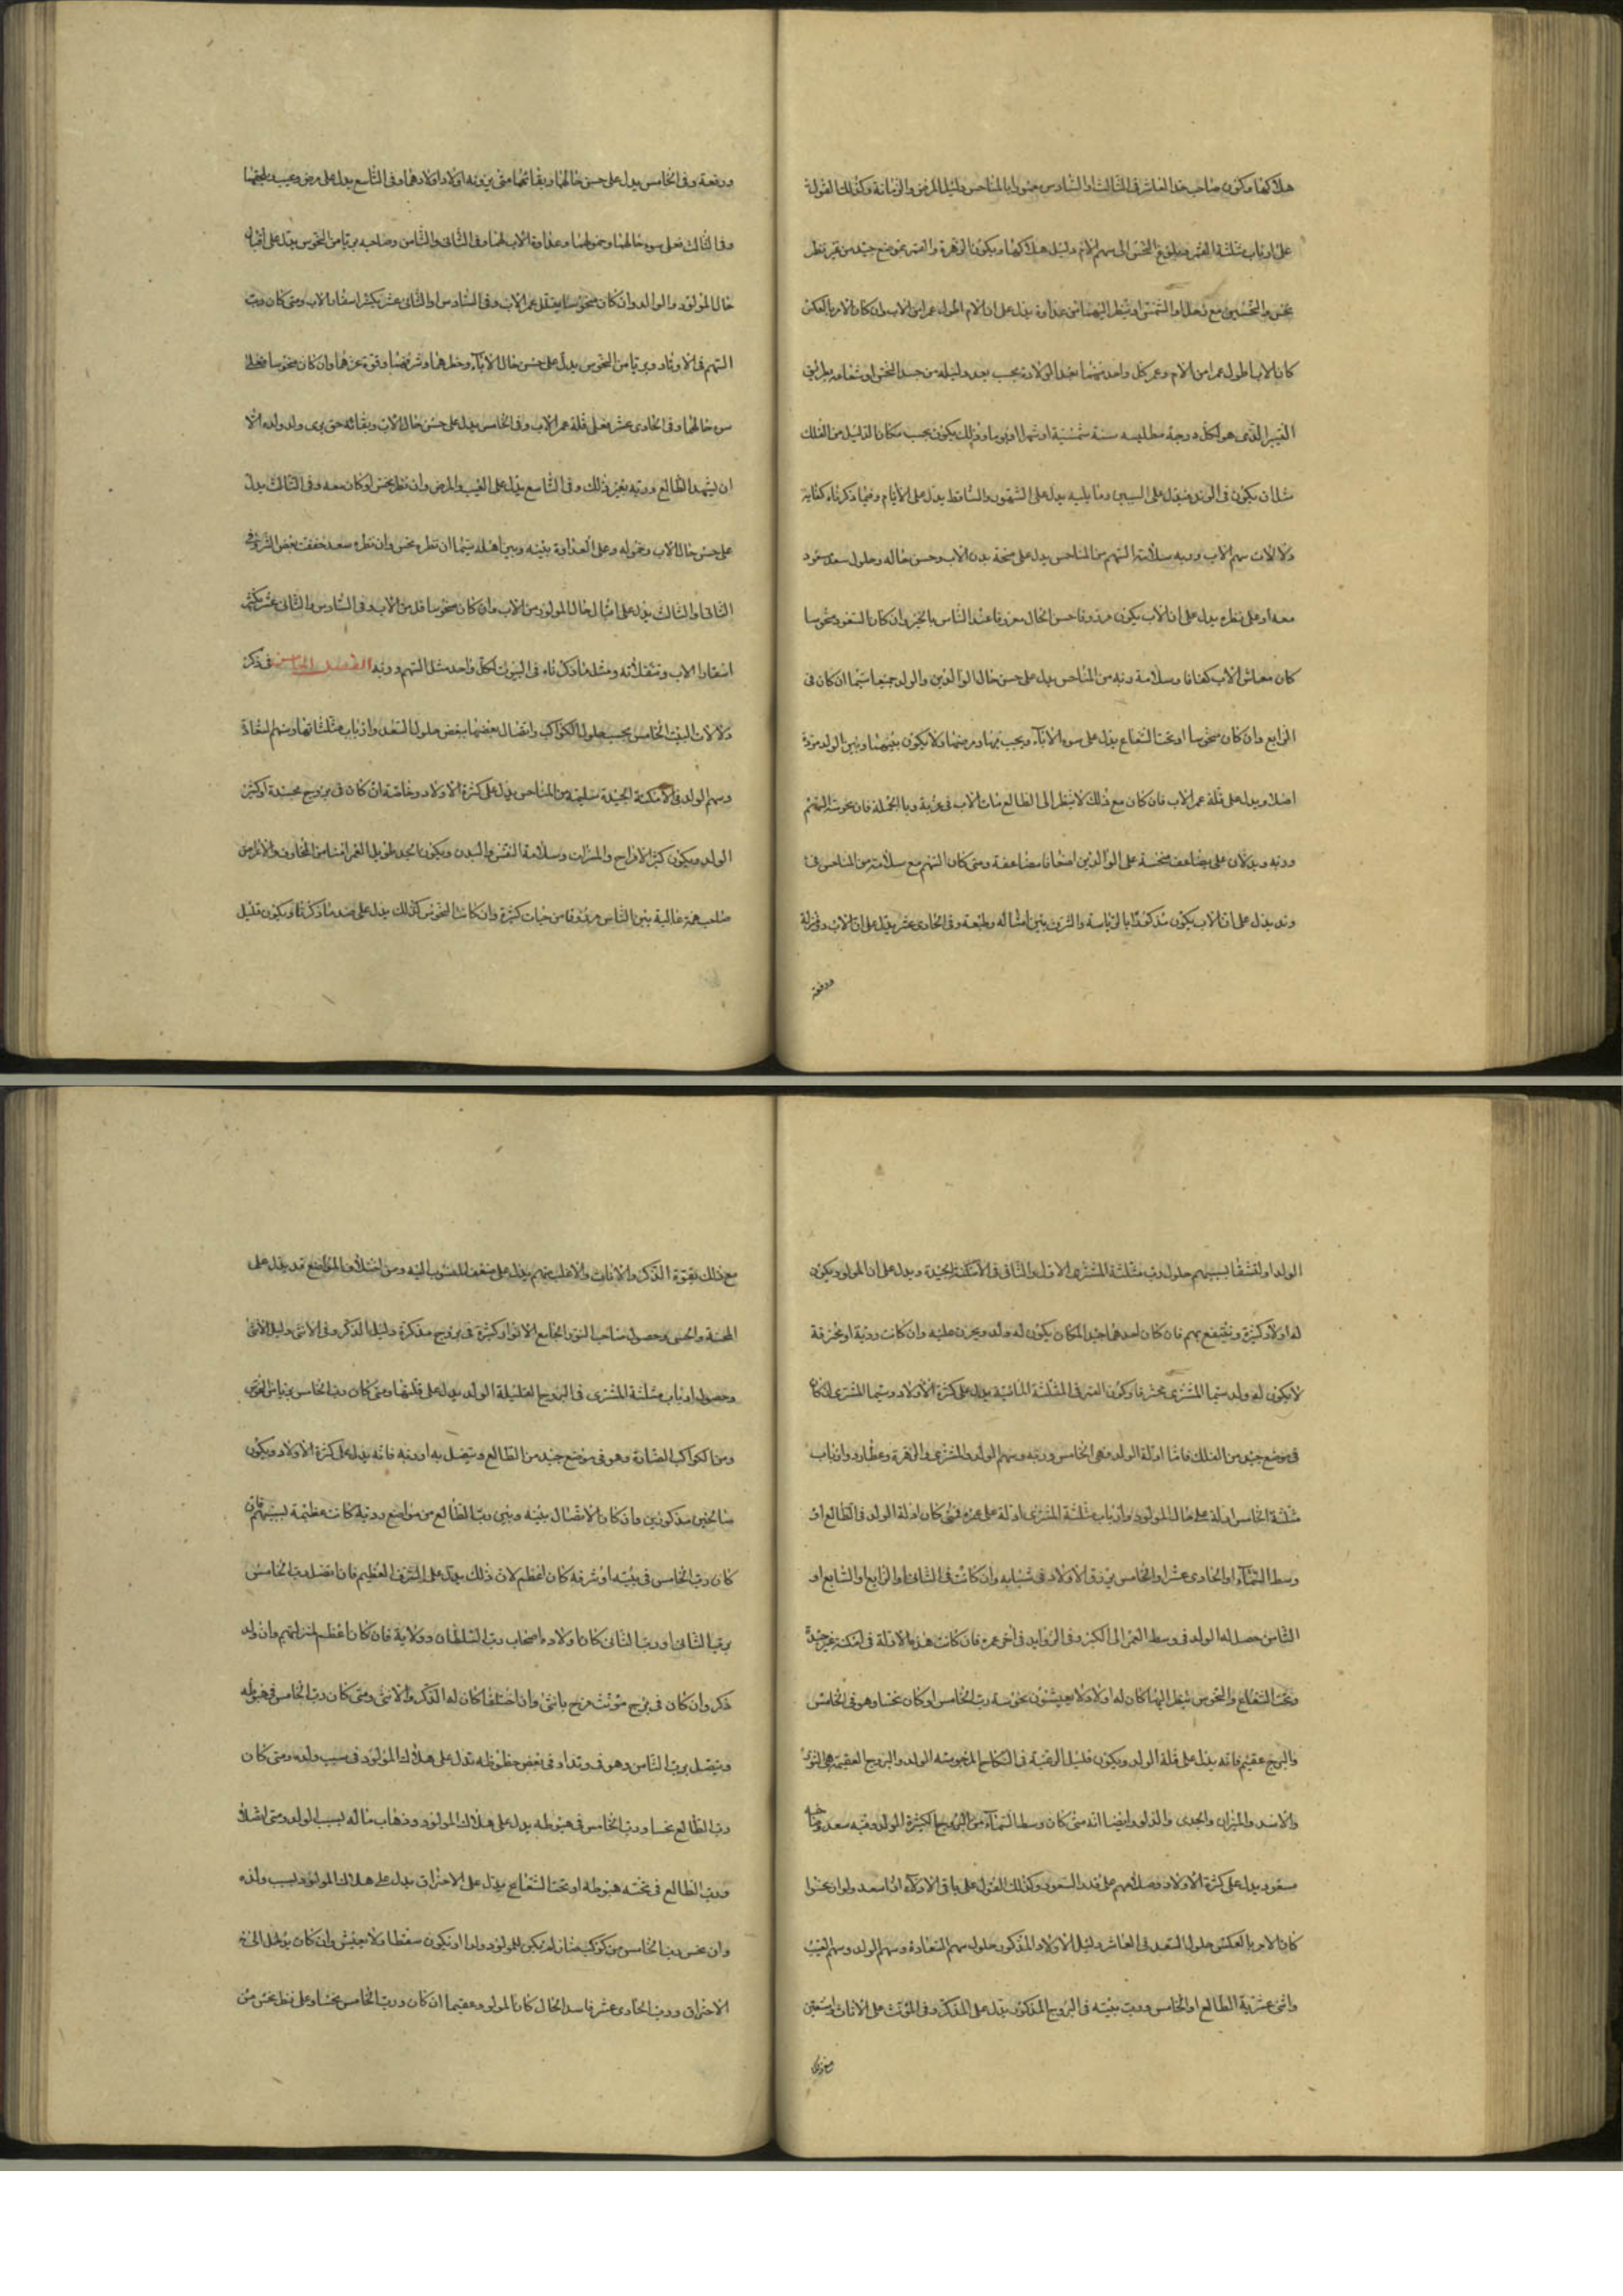 هلاكها وكون صاحب حد العاشر في الثالث او السادس منحوسا بالمناحس دليل المرض والزمانة وكذلك القول
على ارباب مثلثة القمر وطلوع النحس الى سهم الام دليل هلاكها ويكون الزهرة والقمر بموضع جيد من غير نظر
نحس والنحسين مع زحل او الشمس او ينظر اليهما من عداوة يدل على ان الام اطول عمرا من الاب وان كان الامر بالعكس
كان الاب اطول عمرا من الام وعمر كل واحد منهما بعد الولادة بحسب بعد دليله من جسد النحس او شعاعه بطريق
التسيير الذي هو لكل درجة مطلعية سنة شمسية او شهرا او يوما وذلك يكون بحسب مكان الدليل من الفلك
مثلا ان يكون في الوتد فيدل على السنين وما يليه يدل على الشهور والساقط يدل على الايام وفيما ذكرناه كفاية
دلالات سهم الاب وربه سلامة السهم من المناحس يدل على صحة بدن الاب وحسن حاله وحلول سعد مسعود
معه او على نظره يدل على ان الاب يكون مرزوقا حسن الحال معروفا عند الناس بالخير وان كان السعود منحوسا
كان معاش الاب كفافا وسلامة ربه من المناحس يدل على حسن حال الوالدين والولد جميعا سيما ان كان في
الرابع وان كان منحوسا او تحت الشعاع يدل على سوء الاباء ويجب بينهما ولا يكون بينهما وبين الولد مودة
اصلا ويدل على قلة عمر الاب فان كان مع ذلك لا ينظر الى الطالع مات الاب في غربة وبالجملة فان نحوسة السهم
وربه ويدلان على مضاعف منحسة على الوالدين امتحانا مضاعفة ومتى كان السهم مع سلامته من المناحس في
وتد يدل على ان الاب يكون مذكورا بالرياسة والشرف بين امثاله وطبعه وفي الحادي عشر يدل على ان الاب ذو منزلة
ورفعة
ورفعة وفي الخامس يدل على حسن حالهما وبقائهما حتى يرونه اولاد اولادهما وفي التاسع يدل على مرض وعيب يلحقهما
وفي الثالث فعلى سوء حالهما وخمولهما وعداوة الاب لهما وفي الثاني والثامن وصاحبه بريا من النحوس يدل على اقبال
حال المولود والوالد وان كان منحوسا يقلل عمر الاب وفي السادس او الثاني عشر يكثر اسفار الاب ومتى كان رب
السهم في الاوتاد وبريا من النحوس يدل على حسن حال الاباء وخطرهما وشرفهما وقوة عزهما وان كان منحوسا فعلى
سوء حالهما وفي الحادي عشر فعلى قلة عمر الاب وفي الخامس يدل على حسن حال الاب وبقائه حتى يرى ولد ولده الا
ان يشهد الطالع وربه بغير ذلك وفي التاسع يدل على العيب والمرض وان نظر نحس او كان معه وفي الثالث يدل
على حسن حال الاب وخموله وعلى العداوة بينه وبين اهله سيما ان نظره نحس وان نظره سعد خفف بعض الشر وفي
الثاني او الثالث يدل على امثال حال المولود من الاب وان كان منحوسا قد من الاب وفي السادس والثاني عشر يكثر
اسفار الاب وتنقلاته ومثل ما ذكرناه في البيوت لكل واحد مثل السهم وربه الفصل الخامس في ذكر
دلالات البيت الخامس بحسب حلول الكواكب واتصال بعضها ببعض حلول السعد وارباب مثلثاتها وسهم السعادة
وسهم الولد في الامكنة الجيدة سليمة من المناحس يدل على كثرة الاولاد وخاصة ان كان في بروج مجسدة او كثير
الولد ويكون كثير الافراح والمسرات وسلامة النفس والبدن ويكون الجد طويل العمر امنا من المخاوف والامراض
صاحب همة عالية بين الناس مرزوقا من جهات كثيرة وان كانت النحوس كذلك يدل على ضد ما ذكرنا ويكون قليل
الولد او لشفا بسببهم حلول رب مثلثة المشتري الاول والثاني في الامكنة الجيدة ويدل على ان المولود يكون
له اولاد كثيرة وينتفع بهم فان كان احدهما جيد المكان يكون له ولد ويحزن عليه وان كانت ردية او محترقة
لا يكون له ولد سيما المشتري محترقا وكون القمر في المثلثة المائية يدل على كثرة الاولاد وسيما المشتري ان كان
في موضع جيد من الفلك فاما ادلة الولد فهي الخامس وربه وسهم الولد والمشتري والزهرة وعطارد وارباب
مثلثة الخامس ادلة على حال المولود وارباب مثلثة المشتري ادلة على عمره فمتى كان ادلة الولد في الطالع او
وسط السماء او الحادي عشر او الخامس يرزق الاولاد في شبابه وان كانت في الثاني او الرابع او السابع او
الثامن حصل له الولد في وسط العمر الى الكبر وفي الزوايد في اخر عمره فان كانت هذه الادلة في امكنة غير جيدة
وتحت الشعاع والنحوس ينظر اليها كان له اولاد لا يعيشون نحوسة رب الخامس او كان نحسا وهو في الخامس
والبرج عقيم فانه يدل على قلة الولد ويكون قليل الرغبة في النكاح المنحوسة الولد والبروج العقيمة هي الثور
والاسد والميزان والجدي والدلو وايضا انه متى كان وسط السماء من البروج الكثيرة الولد وفيه سعد وصاحبه
مسعود يدل على كثرة الاولاد وصلاحهم على قدر السعود وكذلك القول على باقي الاوتاد انا سعد ولو ان نحسوا
كان الامر بالعكس حلول السعد في العاشر دليل الاولاد المذكور حلول سهم السعادة وسهم الولد وسهم الغيب
واثني عشرية الطالع او الخامس ورب بيته في البروج المذكور يدل على المذكر وفي المؤنث على الاناث واستعن
مع ذلك
مع ذلك بقوة الذكر والاناث والاغلب منهم يدل على ضعف المنسوب اليه ومن اختلاف المواضع قد يدل على
المحنة والخنثى وحصول صاحب النور الجامع الانوار كثيرة في بروج مذكرة دليل الذكر وفي الانثى دليل الانثى
وحصول ارباب مثلثة المشتري في البروج القليلة الولد يدل على قلتها ومتى كان رب الخامس بريا من النحس
ومن الكواكب الضارة وهو في موضع جيد من الطالع ويتصل به او ربه فانه يدل على كثرة الاولاد ويكون
صالحين مذكورين وان كان الاتصال بينه وبين رب الطالع من مواضع ردية كانت عظيمة بسببهم فان
كان رب الخامس في بيته او شرفه كان اعظم لان ذلك يدل على الشرف العظيم فان اتصل رب الخامس
برب الثاني او رب الثاني كان اولاده اصحاب رب السلطان وولاية فان كان اعظم لمنزلتهم وان ولد
ذكر وان كان في برج مؤنث فرح بانثى وان اختلفا كان له الذكر والانثى ومتى كان رب الخامس في هبوطه
ويتصل برب الثامن وهو في وتد او في بعض حظوظه تدل على هلاك المولود في سبب ولده ومتى كان
رب الطالع نحسا ورب الخامس في هبوطه يدل على هلاك المولود وذهاب ماله بسبب الولد ومتى اتصل
ورب الطالع في نحسه هبوطه او تحت الشعاع يدل على الاحتراق يدل على هلاك المولود بسبب ولده
وان نحس رب الخامس من كوكب ضار لم يكن للمولود ولدا او يكون سقطا ولا يعيش وان كان يدخل الى
الاحتراق ورب الحادي عشر فاسد الحال كان المولود عقيما ان كان ورب الخامس نحسا وعلى نظر نحس من